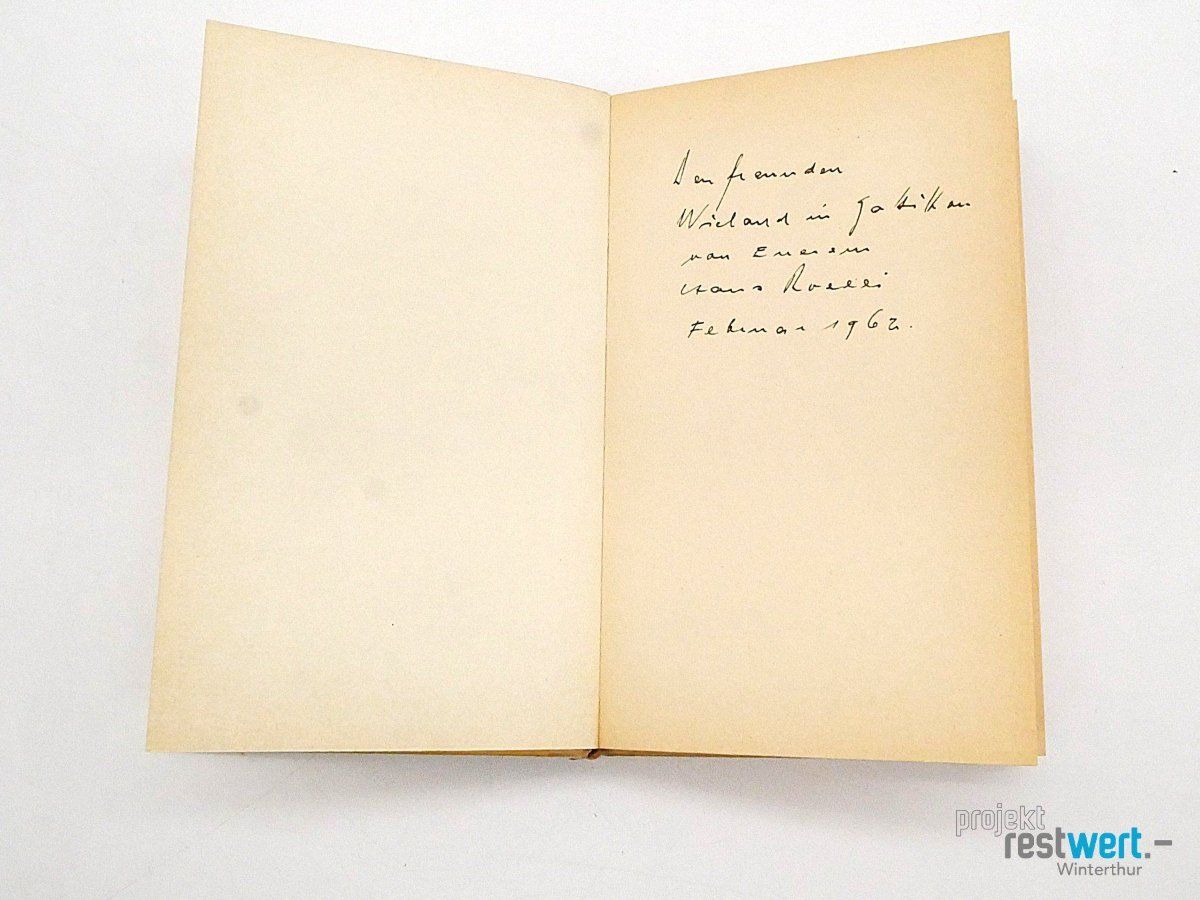 Den freunden
Wieland in Gattikon
von Euerem
Hans Roelli
Februar 1962.
projekt
restwert.–
Winterthur